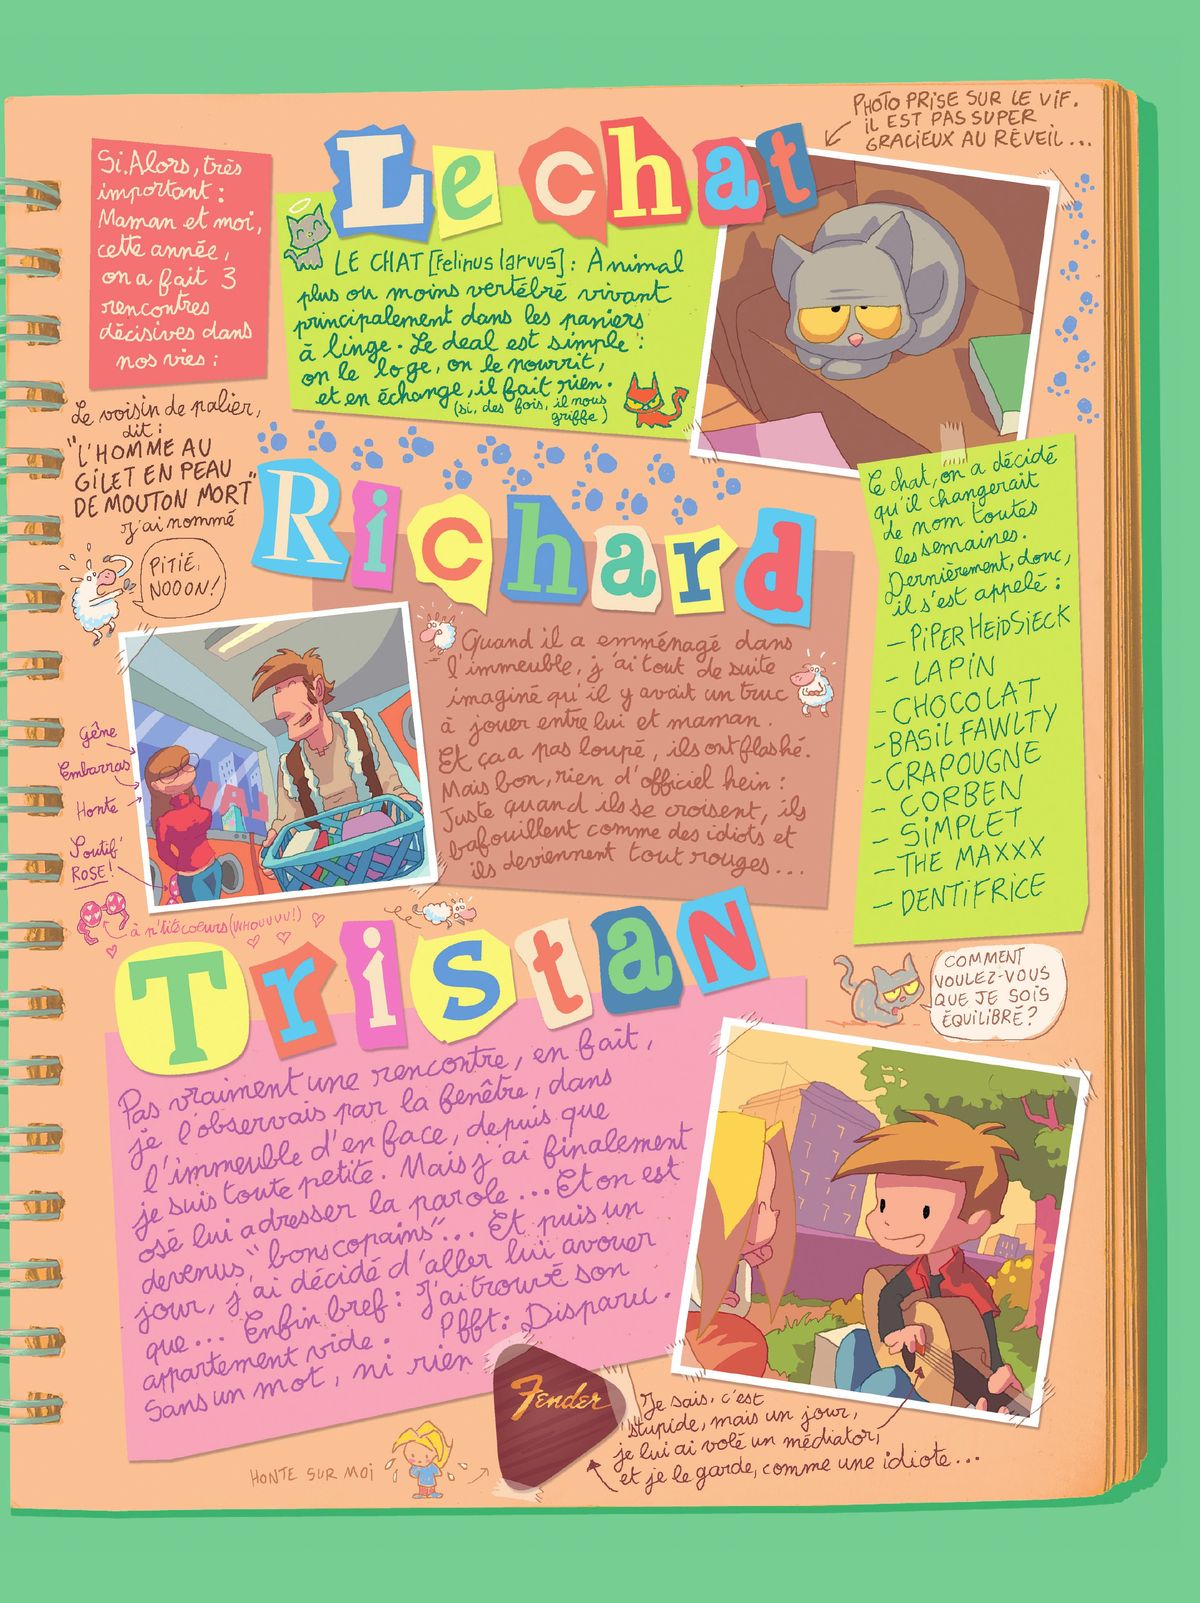 Si. Alors, très
important :
Maman et moi,
cette année,
on a fait 3
rencontres
décisives dans
nos vies :
Le chat
PHOTO PRISE SUR LE VIF.
IL EST PAS SUPER
GRACIEUX AU RÉVEIL...
LE CHAT [Felinus larvus] : Animal
plus ou moins vertébré vivant
principalement dans les paniers
à linge. Le deal est simple :
on le loge, on le nourrit,
et en échange, il fait rien.
(si, des fois, il nous
griffe)
Le voisin de palier,
dit :
"L'HOMME AU
GILET EN PEAU
DE MOUTON MORT"
J'ai nommé
Richard
PITIÉ,
NOOON!
Quand il a emménagé dans
l'immeuble, j'ai tout de suite
imaginé qu'il y avait un truc
à jouer entre lui et maman.
Et ça a pas loupé, ils ont flashé.
Mais bon, rien d'officiel hein :
Juste quand ils se croisent, ils
bafouillent comme des idiots et
ils deviennent tout rouges...
Gêne
Embarras
Honte
Soutif
ROSE!
à p'tits coeurs (WHOUUUU!)
Le chat, on a décidé
qu'il changerait
de nom toutes
les semaines.
Dernièrement, donc,
il s'est appelé :
- PIPER HEIDSIECK
- LAPIN
- CHOCOLAT
- BASIL FAWLTY
- CRAPOUGNE
- CORBEN
- SIMPLET
- THE MAXXX
- DENTIFRICE
COMMENT
VOULEZ-VOUS
QUE JE SOIS
ÉQUILIBRÉ?
Tristan
Pas vraiment une rencontre, en fait,
je l'observais par la fenêtre, dans
l'immeuble d'en face, depuis que
je suis toute petite. Mais j'ai finalement
osé lui adresser la parole... Et on est
devenus "bons copains"... Et puis un
jour, j'ai décidé d'aller lui avouer
que... Enfin bref : J'ai trouvé son
appartement vide. Pfft : Disparu.
Sans un mot, ni rien
Fender
Je sais, c'est
stupide, mais un jour,
je lui ai volé un médiator,
et je le garde, comme une idiote...
HONTE SUR MOI